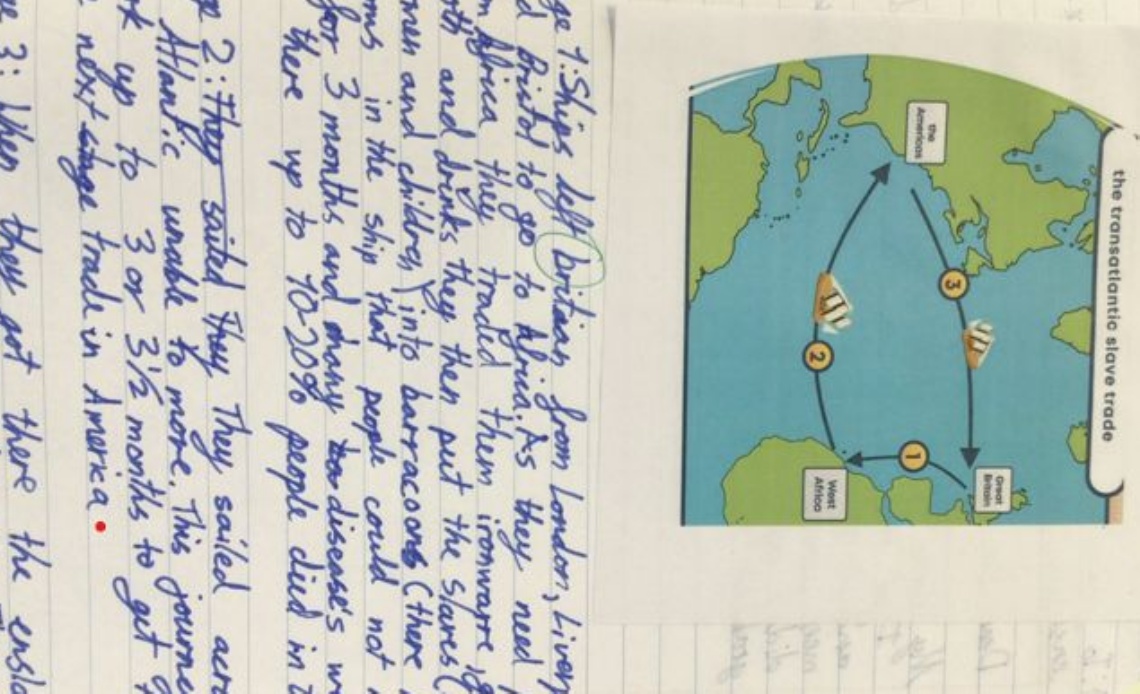 the transatlantic slave trade
the
Americas
3
Great
Britain
2
1
West
Africa
ge 1. Ships left britain from London, Liver
d Bristol to go to Africa. As they need
m Africa they traded them ironware
oth and drinks they then put the slaves (
men and children) into barracoons (there
oms in the ship that people could not
for 3 months and many disease's w
there up to 10-20% people died in
ge 2: They sailed They They sailed acro
Atlantic unable to move. This journe
ok up to 3 or 3 1/2 months to get
e next stage trade in America.
ge 3: When they got there the ensla